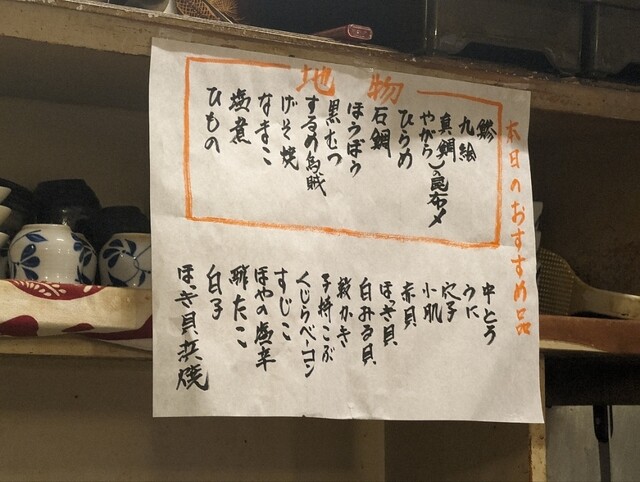 本日のおすすめ品
地物
鯵
九絵
真鯛
やがら〉の昆布〆
ひらめ
石鯛
ほうぼう
黒むつ
するめ烏賊
げそ焼
なまこ
塩煮
ひもの
中とろ
うに
穴子
小肌
赤貝
ほっき貝
白みる貝
殻かき
子持こぶ
くじらベーコン
すじこ
ほやの塩辛
酢たこ
白子
ほっき貝抂焼